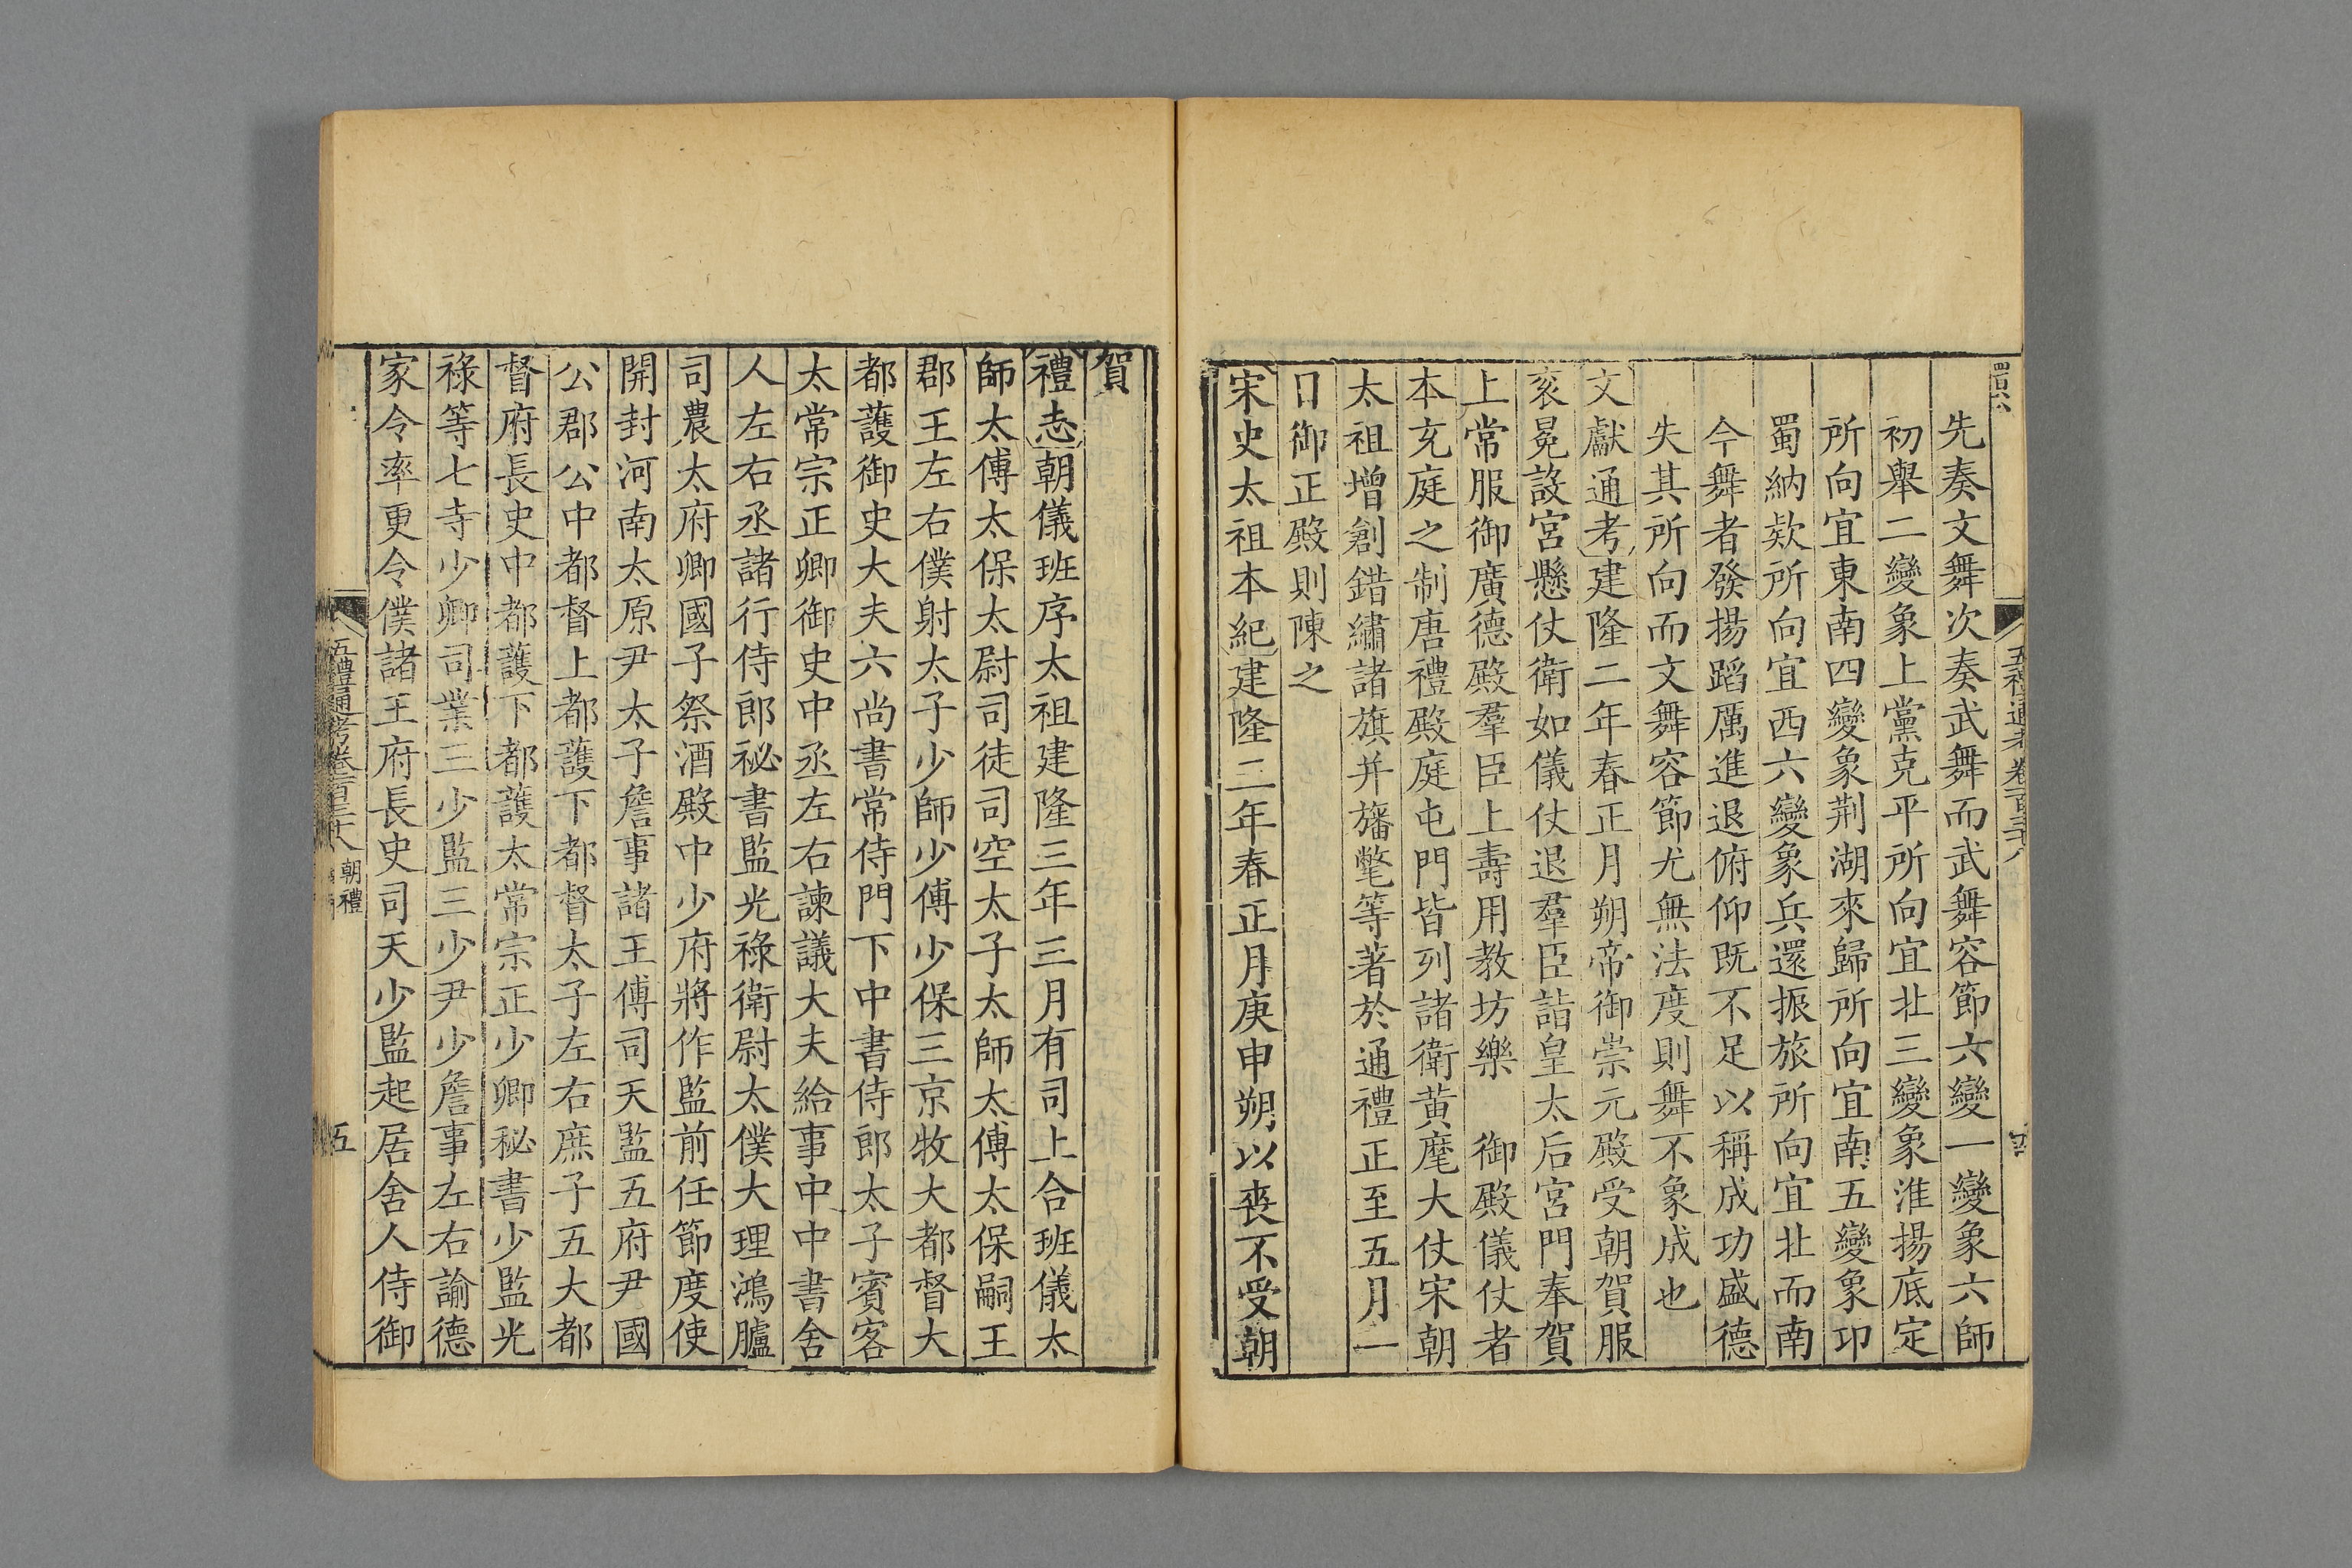 五禮通考卷一百三十八
先奏文舞次奏武舞而武舞容節六變一變象六師
初舉二變象上黨克平所向宜北三變象淮揚底定
所向宜東南四變象荆湖來歸所向宜南五變象卭
蜀納欵所向宜西六變象兵還振旅所向宜北而南
今舞者發揚蹈厲進退俯仰既不足以稱成功盛德
失其所向而文舞容節尤無法度則舞不象成也
文獻通考建隆二年春正月朔帝御崇元殿受朝賀服
衮冕設宮懸仗衛如儀仗退羣臣詣皇太后宮門奉賀
上常服御廣德殿羣臣上壽用教坊樂 御殿儀仗者
本充庭之制唐禮殿庭屯門皆列諸衛黄麾大仗宋朝
太祖增創錯繡諸旗并旛氅等著於通禮正至五月一
日御正殿則陳之
宋史太祖本紀建隆二年春正月庚申朔以喪不受朝
賀
禮志朝儀班序太祖建隆三年三月有司上合班儀太
師太傅太保太尉司徒司空太子太師太傅太保嗣王
郡王左右僕射太子少師少傅少保三京牧大都督大
都護御史大夫六尚書常侍門下中書侍郎太子賓客
太常宗正卿御史中丞左右諫議大夫給事中中書舍
人左右丞諸行侍郎祕書監光祿衛尉太僕大理鴻臚
司農太府卿國子祭酒殿中少府將作監前任節度使
開封河南太原尹太子詹事諸王傅司天監五府尹國
公郡公中都督上都護下都督太子左右庶子五大都
督府長史中都護下都護太常宗正少卿秘書少監光
祿等七寺少卿司業三少監三少尹少詹事左右諭德
家令率更令僕諸王府長史司天少監起居舍人侍御
五禮通考卷一百三十八 朝禮
五